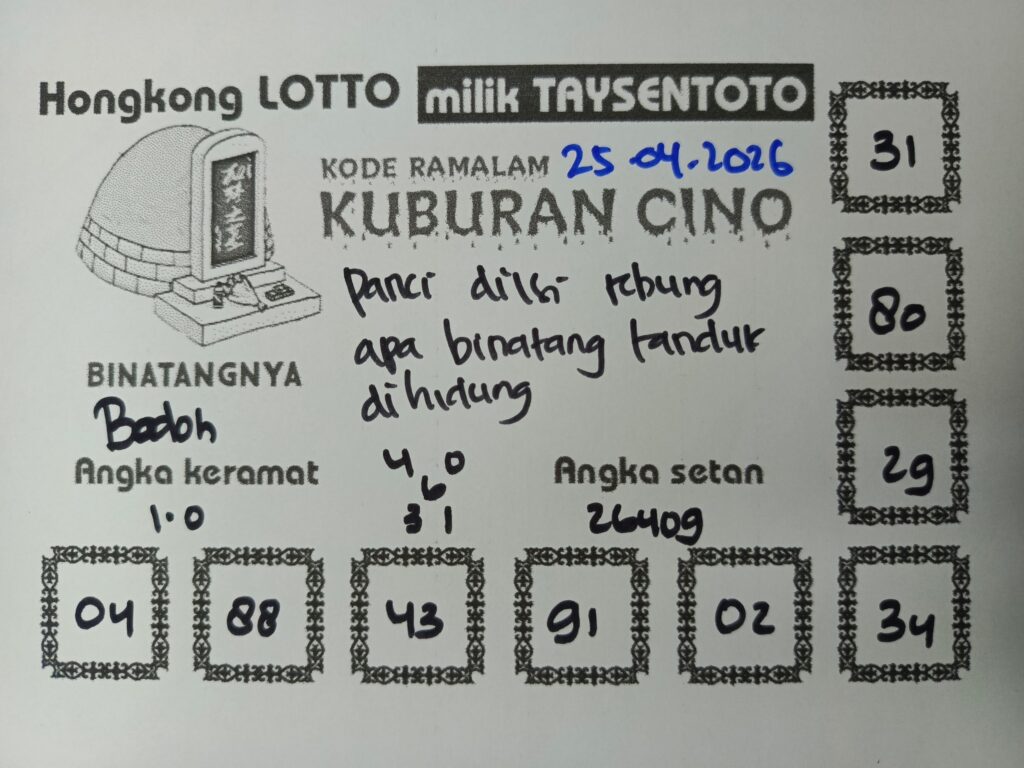 Hongkong LOTTO milik TAYSENTOTO
KODE RAMALAM 25.04.2026
KUBURAN CINO
panci diisi rebung
apa binatang tanduk
dihidung
BINATANGNYA
Badak
Angka keramat
1.0
4 0
6
3 1
Angka setan
26409
31
80
29
04
88
43
91
02
34